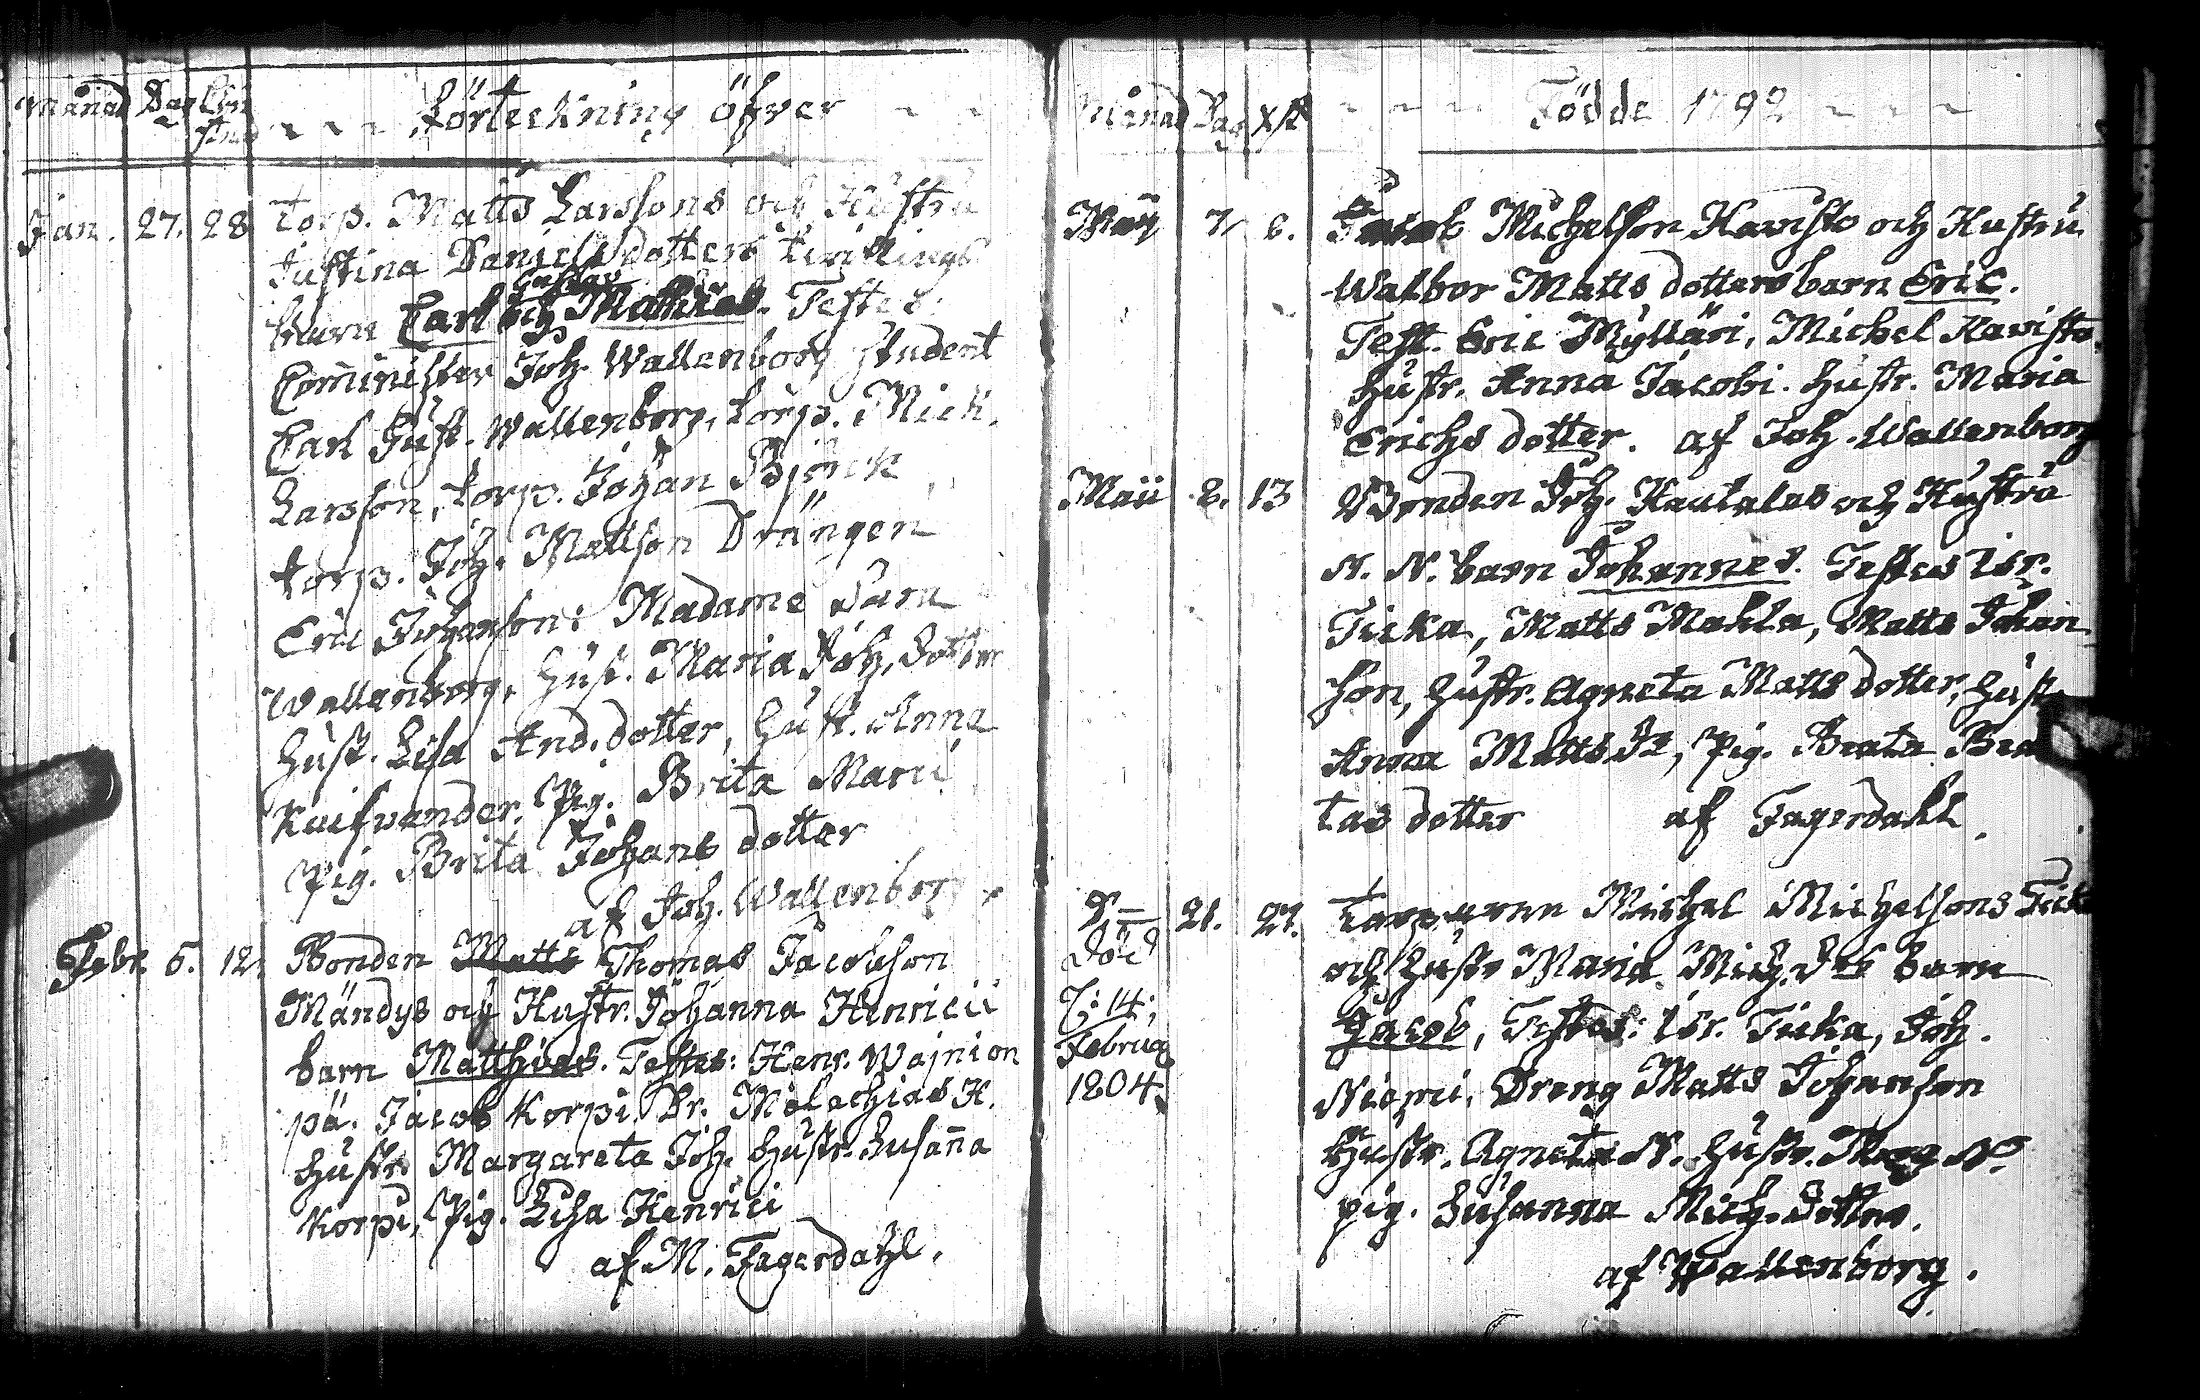 Månad Dag Christnad Förteckning öfver
Jan. 27. 28 Torp. Matts Larssons och Hustru
Justina Danielsdotters twillings
barn Carl Gustav och Mathias. Testes
Comminister Joh. Wallenborg Student
Carl Gust. Wallenborg, torp. Mick.
Larsson, torp. Johan Björck
torp. Joh. Mattson Drängen
Eric Johanson: Madame Sara
Wallenborg, Hust. Maria Joh. dotter
Hust. Lisa And. dotter, Hust. Anna
Pig. Brita Marci
Pig. Brita Johans dotter
af Joh. Wallenborg
Febr. 5. 12. Bonden Matts Thomas Jacobson
Mändys och Hustr. Johanna Henricii
barn Matthias. Testes: Henr. Wajnion
pä. Jacob Korpi. Dr. Malachias K.
Hustr. Margareta Joh. Hustr. Susanna
Korpi, Pig. Lisa Henrici
af M. Fagerdahl.
Månad Dag Xst Födde 1792
Maij 7. 8. Jacob Michelson Havisto och Hustru
Walbor Matts dotters barn Eric.
Test. Eric Mylläri, Michel Havisto
Hustr. Anna Jacobi. Hustr. Maria
Erichs dotter. af Joh. Wallenborg
Maii 8. 13 Bonden Joh. Hautalas och Hustru
N. N. barn Johannes. Testes Isr.
Ticka, Matts Mahla, Matts Johan
son, Hustr. Agneta Matts dotter, Hustr
Anna Matts Dr, Pig. Beata Bea
tas dotter af Fagerdahl.
D— 21. 27. Torparen Michel Michelsons Ticka
och Hustr Maria Mich. Drs barn
Jacob, Testes: Isr. Ticka, Joh.
Niopri, Dreng Matts Johanson
Hustr. Agneta N. Hustr. Marg N.
pig. Susanna Mich. dotter.
af Wallenborg.
död
d: 14:
Februa
1804.